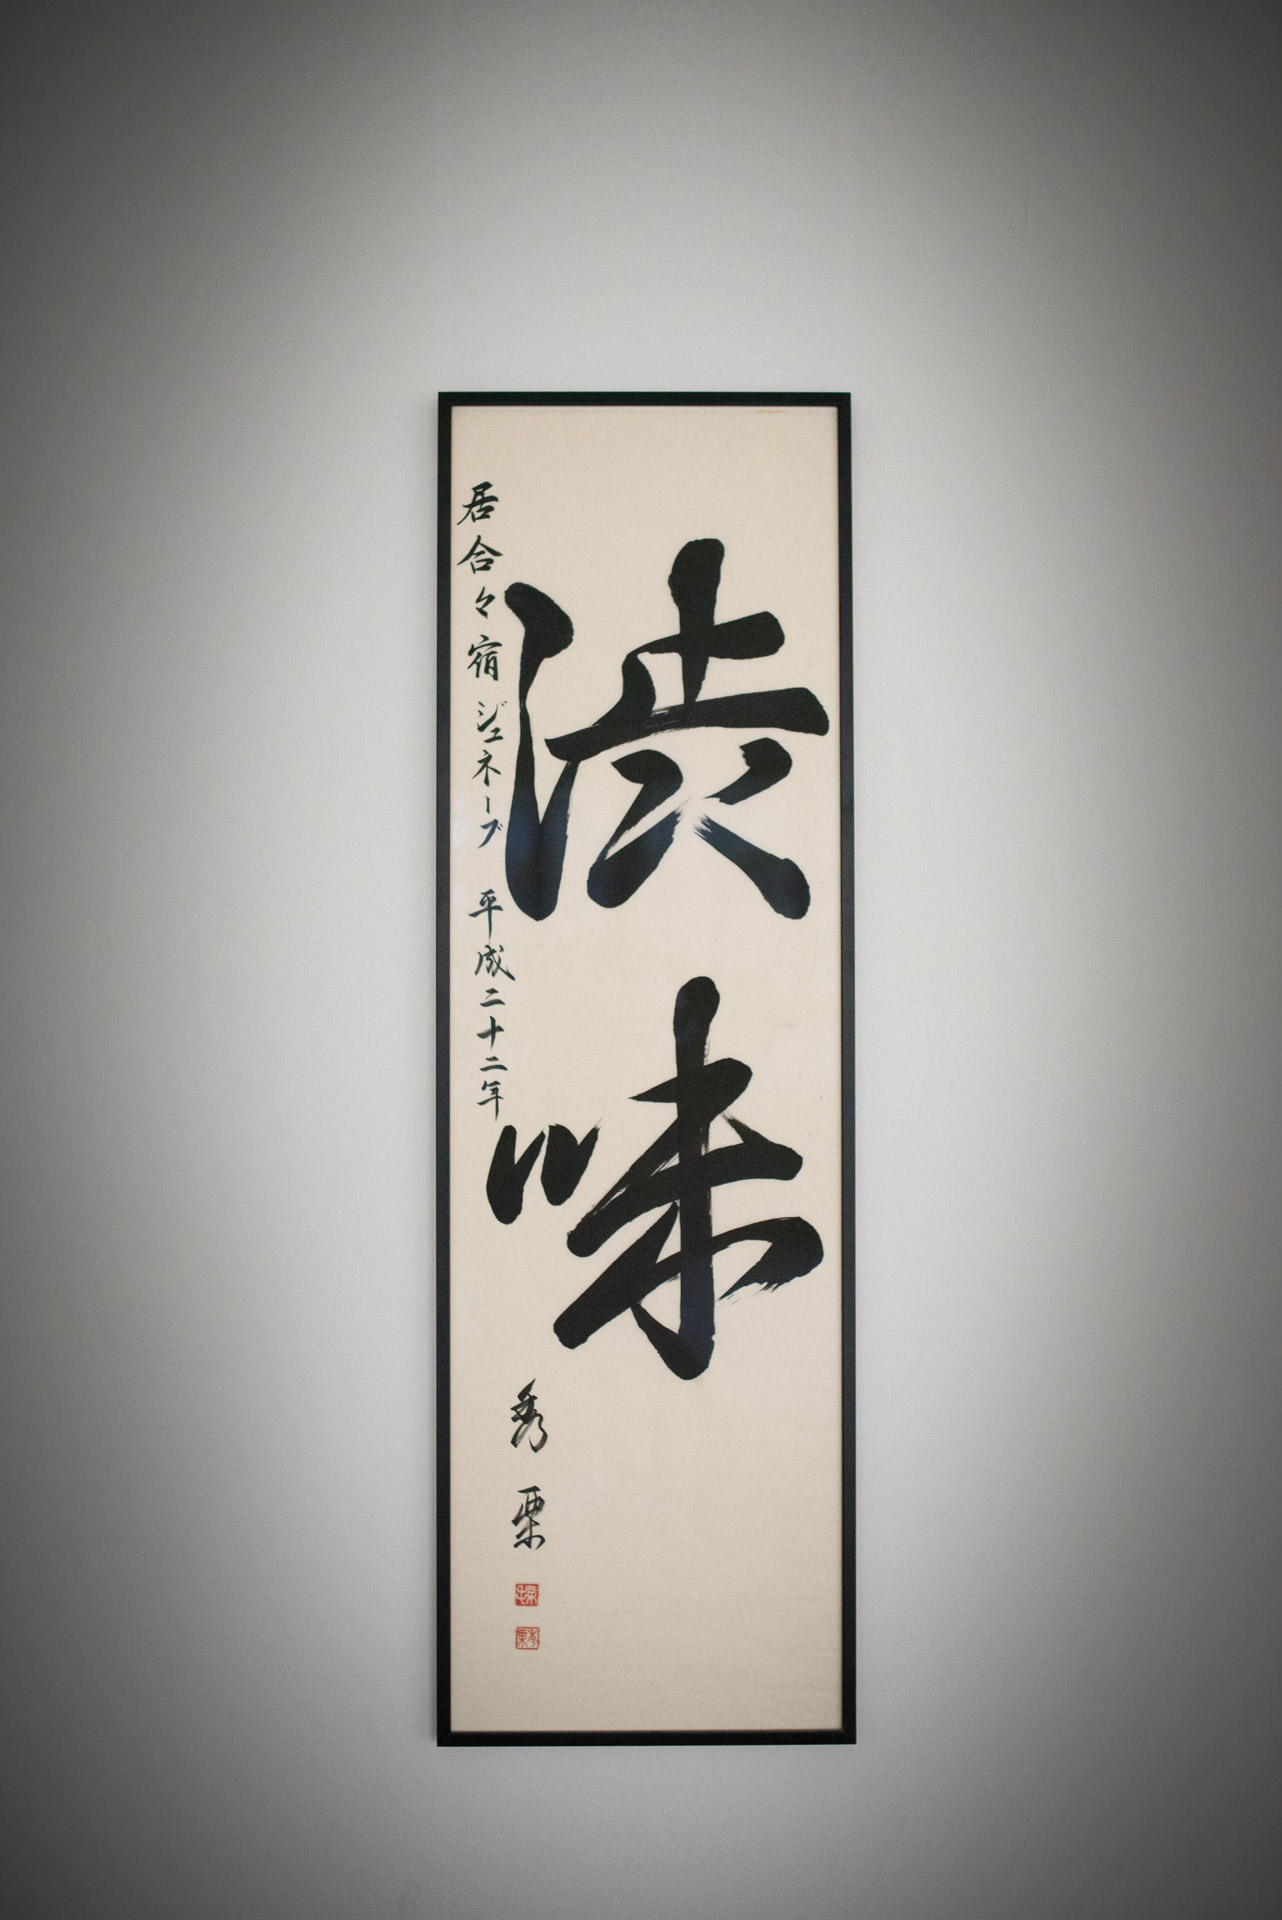 渋味
居合々宿ジュネーブ 平成二十二年
秀粟